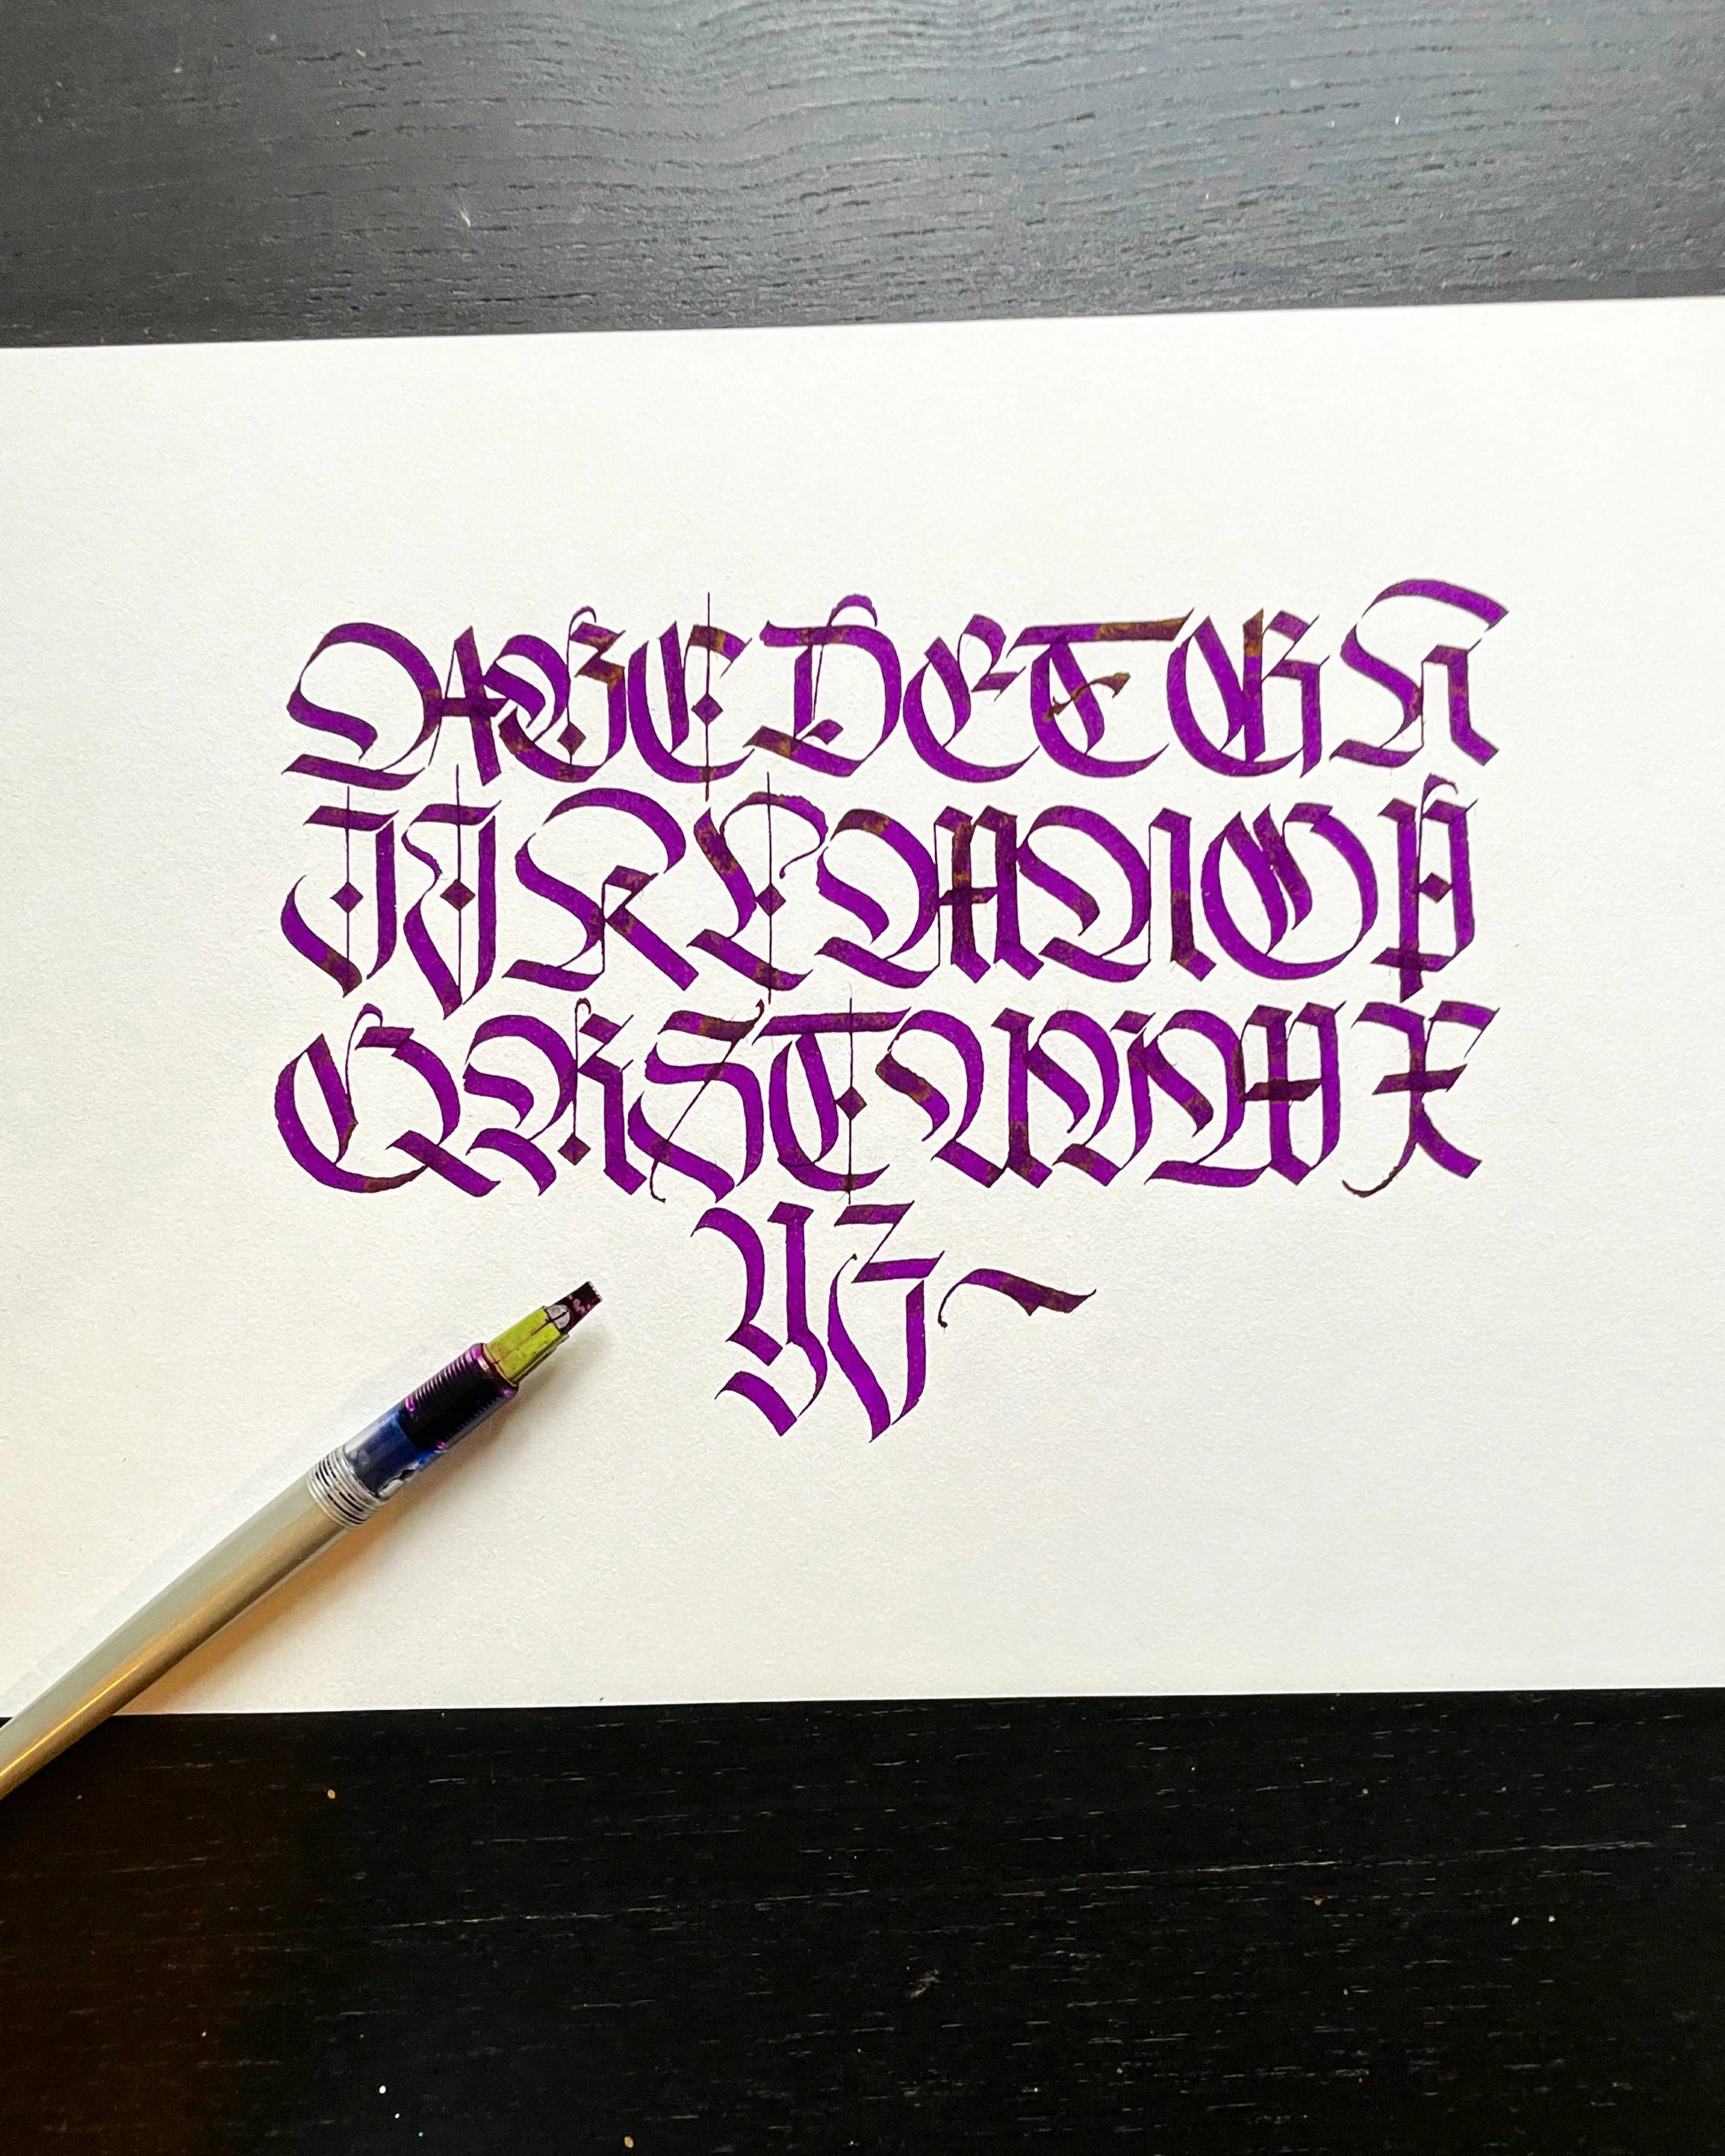 ABCDEFGH
IJKLMNOP
QRSTUVWX
YZ~